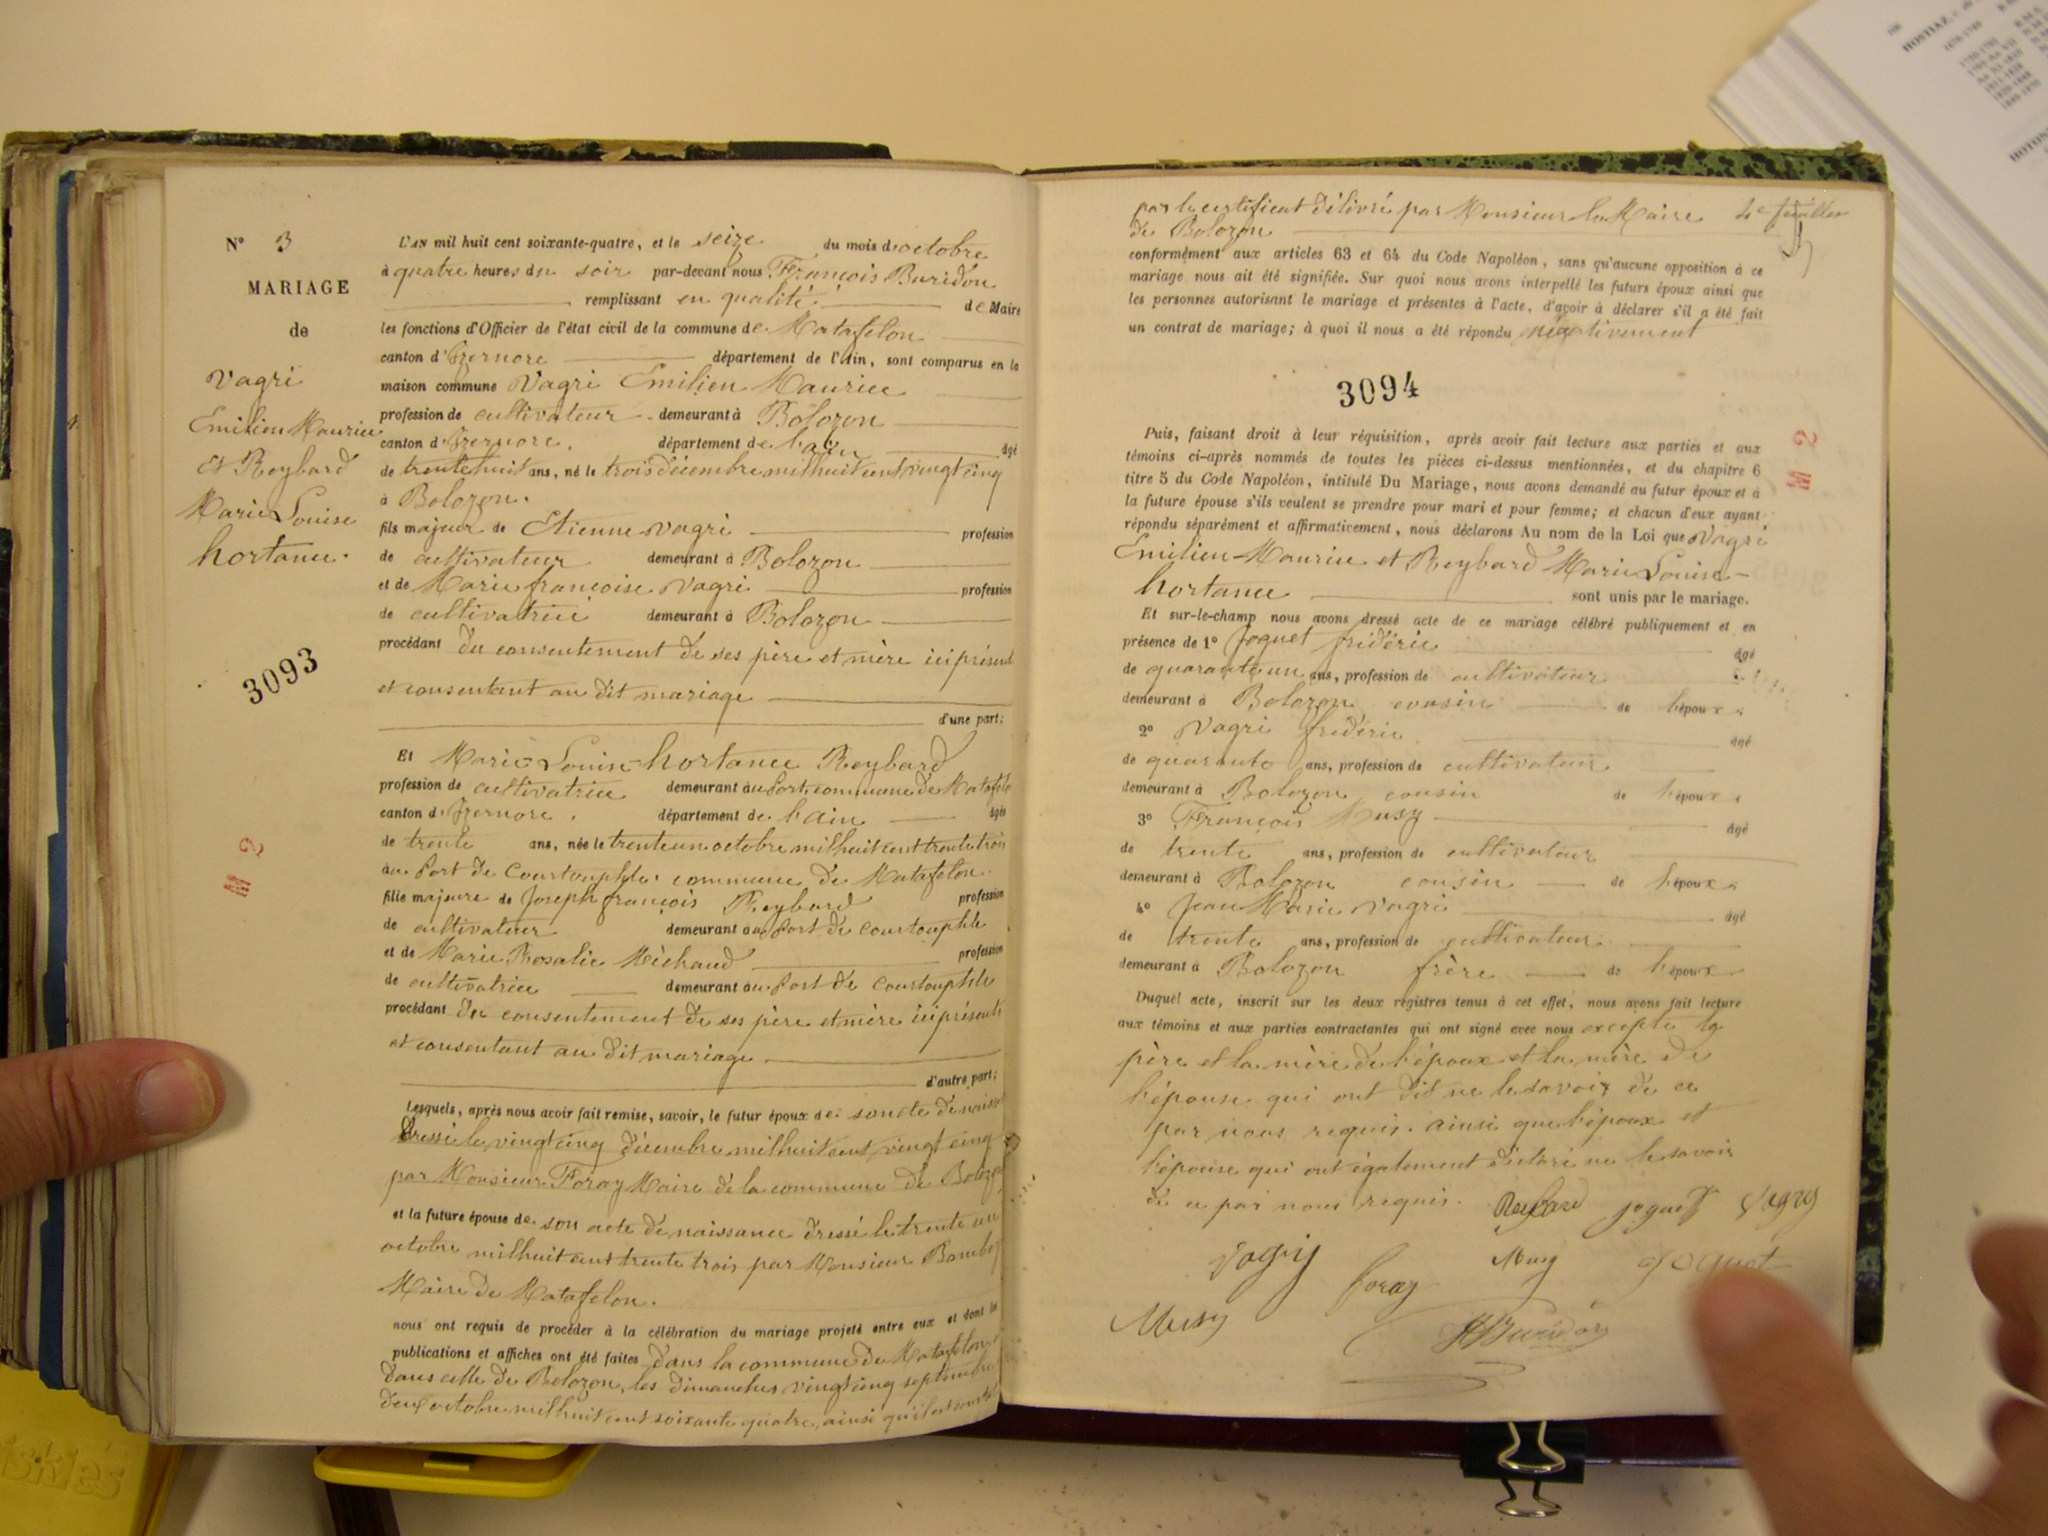 N° 3
MARIAGE
de
Vagri
Emilien Maurice
Et Reybard
Marie Louise
hortance.
3093
L'AN mil huit cent soixante-quatre, et le seize du mois d'octobre
à quatre heures du soir par-devant nous François Buridon
remplissant en qualité de Maire
les fonctions d'Officier de l'état civil de la commune de Matafelon
canton d'Izernore département de l'Ain, sont comparus en la
maison commune Vagri Emilien Maurice
profession de cultivateur demeurant à Bolozon
canton d'Izernore. département de l'ain âgé
de trente huit ans, né le trois décembre mil huit cent vingt cinq
à Bolozon.
fils majeur de Etienne Vagri profession
de cultivateur demeurant à Bolozon
et de Marie françoise Vagri profession
de cultivatrice demeurant à Bolozon
procédant du consentement de ses père et mère ici présent
et consentant au dit mariage
d'une part;
Et Marie Louise hortance Reybard
profession de cultivatrice demeurant au Port commune de Matafelo
canton d'Izernore. département de l'ain âgée
de trente ans, née le trente un octobre mil huit cent trente trois
au Port de Courtouphle commune de Matafelon.
fille majeure de Joseph françois Reybard profession
de cultivateur demeurant au Port de Courtouphle
et de Marie Rosalie Michaud profession
de cultivatrice demeurant au Port de Courtouphle
procédant du consentement de ses père et mère ici présents
et consentant au dit mariage
d'autre part;
Lesquels, après nous avoir fait remise, savoir, le futur époux de son acte de naiss
dressé le vingt cinq décembre mil huit cent vingt cinq
par Monsieur Foray Maire de la commune de Boloz
et la future épouse de son acte de naissance dressé le trente un
octobre mil huit cent trente trois par Monsieur
Maire de Matafelon.
nous ont requis de procéder à la célébration du mariage projeté entre eux et dont les
publications et affiches ont été faites dans la commune de Matafelon
dans celle de Bolozon, les dimanches vingt cinq septembre
deux octobre mil huit cent soixante quatre, ainsi qu'il est
par le certificat délivré par Monsieur le Maire 4e feuillet
de Bolozon
conformément aux articles 63 et 64 du Code Napoléon, sans qu'aucune opposition à ce
mariage nous ait été signifiée. Sur quoi nous avons interpellé les futurs époux ainsi que
les personnes autorisant le mariage et présentes à l'acte, d'avoir à déclarer s'il a été fait
un contrat de mariage; à quoi il nous a été répondu négativement
3094
Puis, faisant droit à leur réquisition, après avoir fait lecture aux parties et aux
témoins ci-après nommés de toutes les pièces ci-dessus mentionnées, et du chapitre 6
titre 5 du Code Napoléon, intitulé Du Mariage, nous avons demandé au futur époux et à
la future épouse s'ils veulent se prendre pour mari et pour femme; et chacun d'eux ayant
répondu séparément et affirmativement, nous déclarons Au nom de la Loi que Vagri
Emilien Maurice et Reybard Marie Louise
hortance sont unis par le mariage.
Et sur-le-champ nous avons dressé acte de ce mariage célébré publiquement et en
présence de 1° Joguet fridéric âgé
de quarante un ans, profession de cultivateur
demeurant à Bolozon cousin de l'époux.
2° Vagri fridéric âgé
de quarante ans, profession de cultivateur
demeurant à Bolozon cousin de l'époux.
3° François Musy âgé
de trente ans, profession de cultivateur
demeurant à Bolozon cousin de l'époux.
4° Jean Marie Vagri âgé
de trente ans, profession de cultivateur
demeurant à Bolozon frère de l'époux
Duquel acte, inscrit sur les deux registres tenus à cet effet, nous avons fait lecture
aux témoins et aux parties contractantes qui ont signé avec nous excepté le
père et la mère de l'époux et la mère de
l'épouse qui ont dit ne le savoir de ce
par nous requis. ainsi que l'époux et
l'épouse qui ont également déclaré ne le savoir
de ce par nous requis. Reybard joguet Vagry
Vagry foray Musy joguet
Musy Buridon